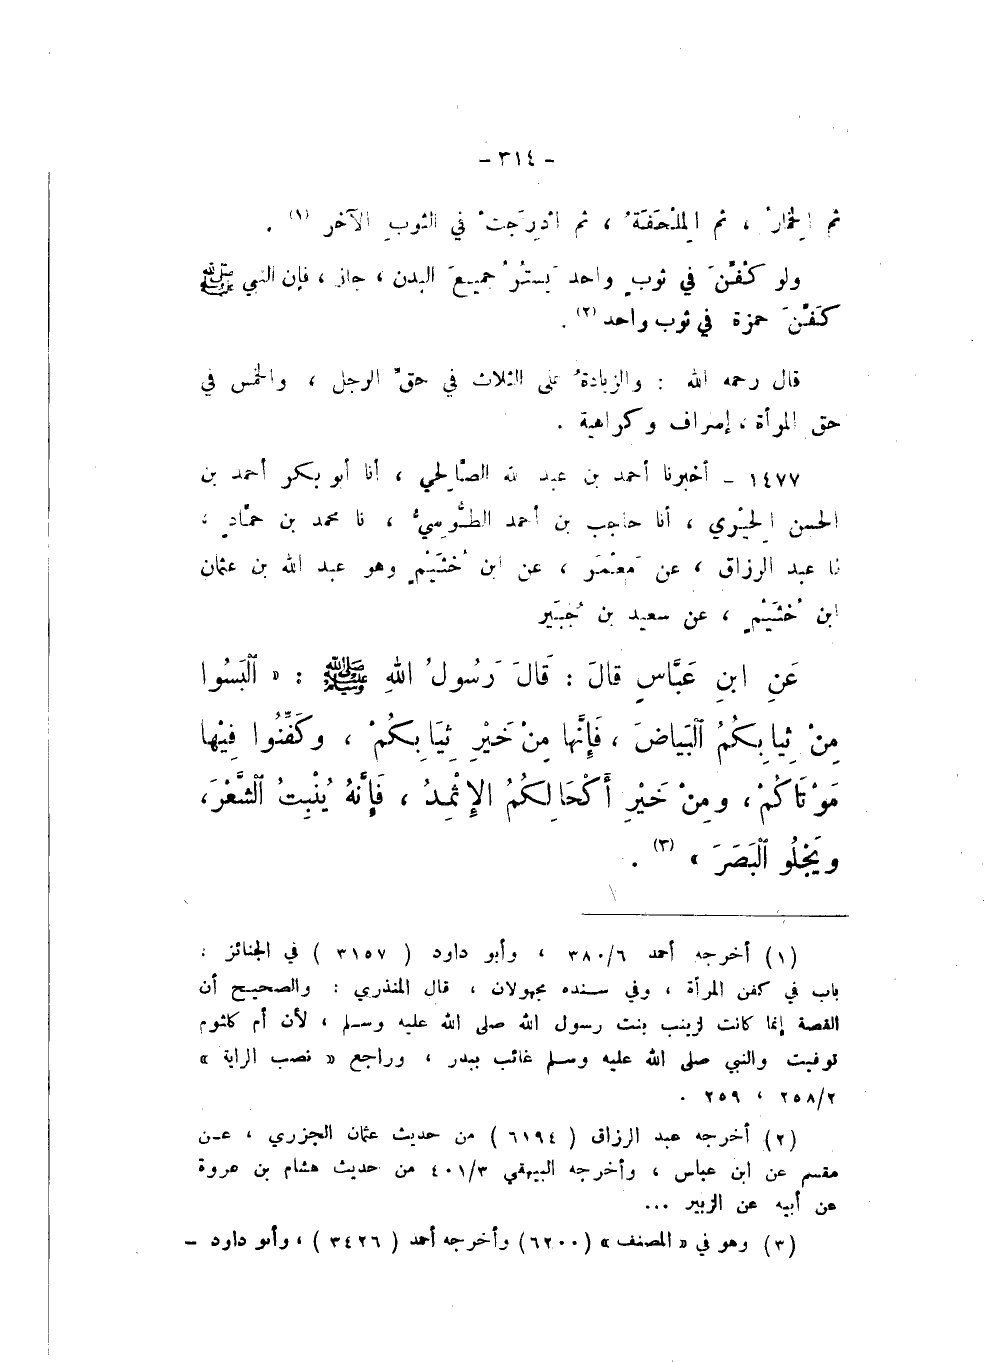 - ٣١٤ -
ثم الخِمارُ ، ثم المِلْحَفَةُ ، ثم أُدرِجَتْ في الثوبِ الآخر (١) .
ولو كُفِّنَ في ثوبٍ واحد يَستُرُ جميعَ البدن ، جاز ، فإن النبي ﷺ
كَفَّنَ حمزة في ثوب واحد (٢) .
قال رحمه الله : والزيادةُ على الثلاث في حقِّ الرجل ، والخمس في
حق المرأة ، إسراف وكراهية .
١٤٧٧ - أخبرنا أحمد بن عبد الله الصَّالِحي ، أنا أبو بكر أحمد بن
الحسن الحِيْري ، أنا حاجب بن أحمد الطُّوسِيُّ ، نا محمد بن حمَّادٍ ،
نا عبد الرزاق ، عن مَعْمَر ، عن ابن خُثَيْمٍ وهو عبد الله بن عثمان
ابن خُثَيْمٍ ، عن سعيد بن جُبَير
عَنِ ابنِ عَبَّاسٍ قالَ : قَالَ رَسُولُ اللهِ ﷺ : « ٱلْبَسُوا
مِنْ ثِيابِكُمُ ٱلْبَيَاضَ ، فَإِنَّها مِنْ خَيْرِ ثِيَابِكُمْ ، وكَفِّنُوا فِيْها
مَوْتَاكُمْ ، ومِنْ خَيْرِ أَكْحَالِكُمُ الإثْمِدُ ، فَإنَّهُ يُنْبِتُ ٱلشَّعْرَ ،
ويَجْلُو ٱلْبَصَرَ » (٣) .
(١) أخرجه أحمد ٣٨٠/٦ ، وأبو داود ( ٣١٥٧ ) في الجنائز :
باب في كفن المرأة ، وفي سنده مجهولان ، قال المنذري : والصحيح أن
القصة إنما كانت لزينب بنت رسول الله صلى الله عليه وسلم ، لأن أم كلثوم
توفيت والنبي صلى الله عليه وسلم غائب ببدر ، وراجع « نصب الراية »
٢٥٨/٢ ، ٢٥٩ .
(٢) أخرجه عبد الرزاق ( ٦١٩٤ ) من حديث عثمان الجزري ، عن
مقسم عن ابن عباس ، وأخرجه البيهقي ٤٠١/٣ من حديث هشام بن عروة
عن أبيه عن الزبير ...
(٣) وهو في « المصنف » (٦٢٠٠) وأخرجه أحمد ( ٣٤٢٦ ) ، وأبو داود -